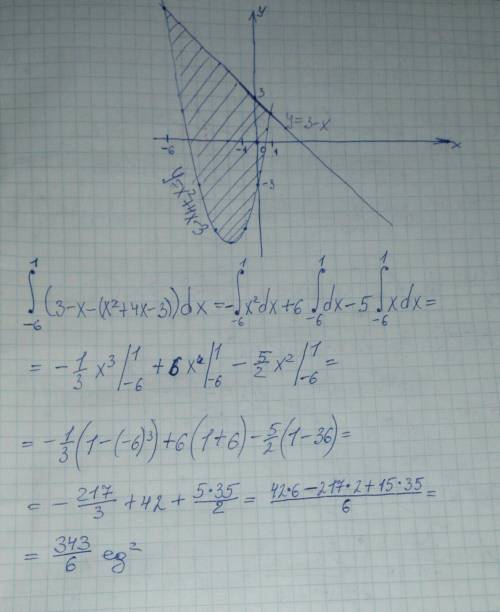 y
3
y=3-x
-6
-1
0
1
x
y=x²+4x-3
-3
∫₋₆¹(3-x-(x²+4x-3))dx=-∫₋₆¹x²dx+6∫₋₆¹dx-5∫₋₆¹xdx=
= -1/3 x³|₋₆¹ + 6x|₋₆¹ - 5/2 x²|₋₆¹ =
= -1/3(1-(-6)³)+6(1+6)-5/2(1-36)=
= -217/3 + 42 + 5·35/2 = 42·6-217·2+15·35/6 =
= 343/6 ед²